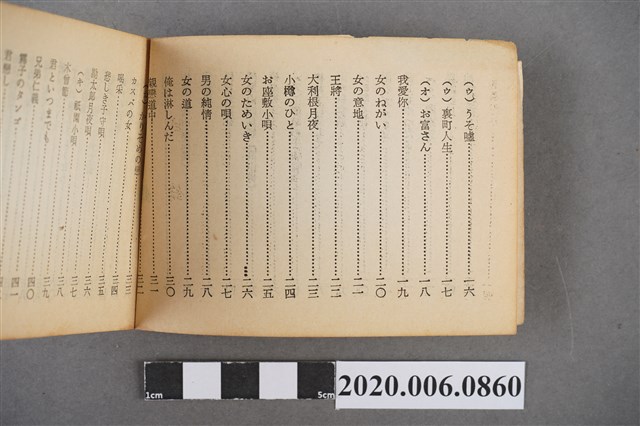 (ウ) うそ嘘 一六
(ウ) 裏町人生 一七
(オ) お富さん 一八
我愛你 一九
女のねがい 二〇
女の意地 二一
王將 二二
大利根月夜 二三
小樽のひと 二四
お座敷小唄 二五
女のためいき 二六
女心の唄 二七
男の純情 二八
女の道 二九
俺は淋しんだ 三〇
三一
カスバの女 三三
喝采 三四
悲しき子守唄 三五
(オ) 祇園小唄 三六
君といつまでも 三九
兄弟仁義 四〇
霧子のタンゴ 四一
1cm
5cm
2020.006.0860